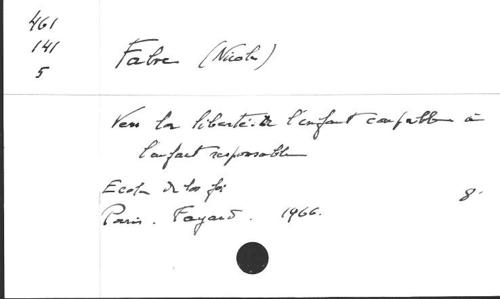 461
141
5
Fabre (Nicole)
Vers la liberté. de l'enfant coupable à
l'enfant responsable
Ecole de la foi
Paris. Fayard. 1966. 8°